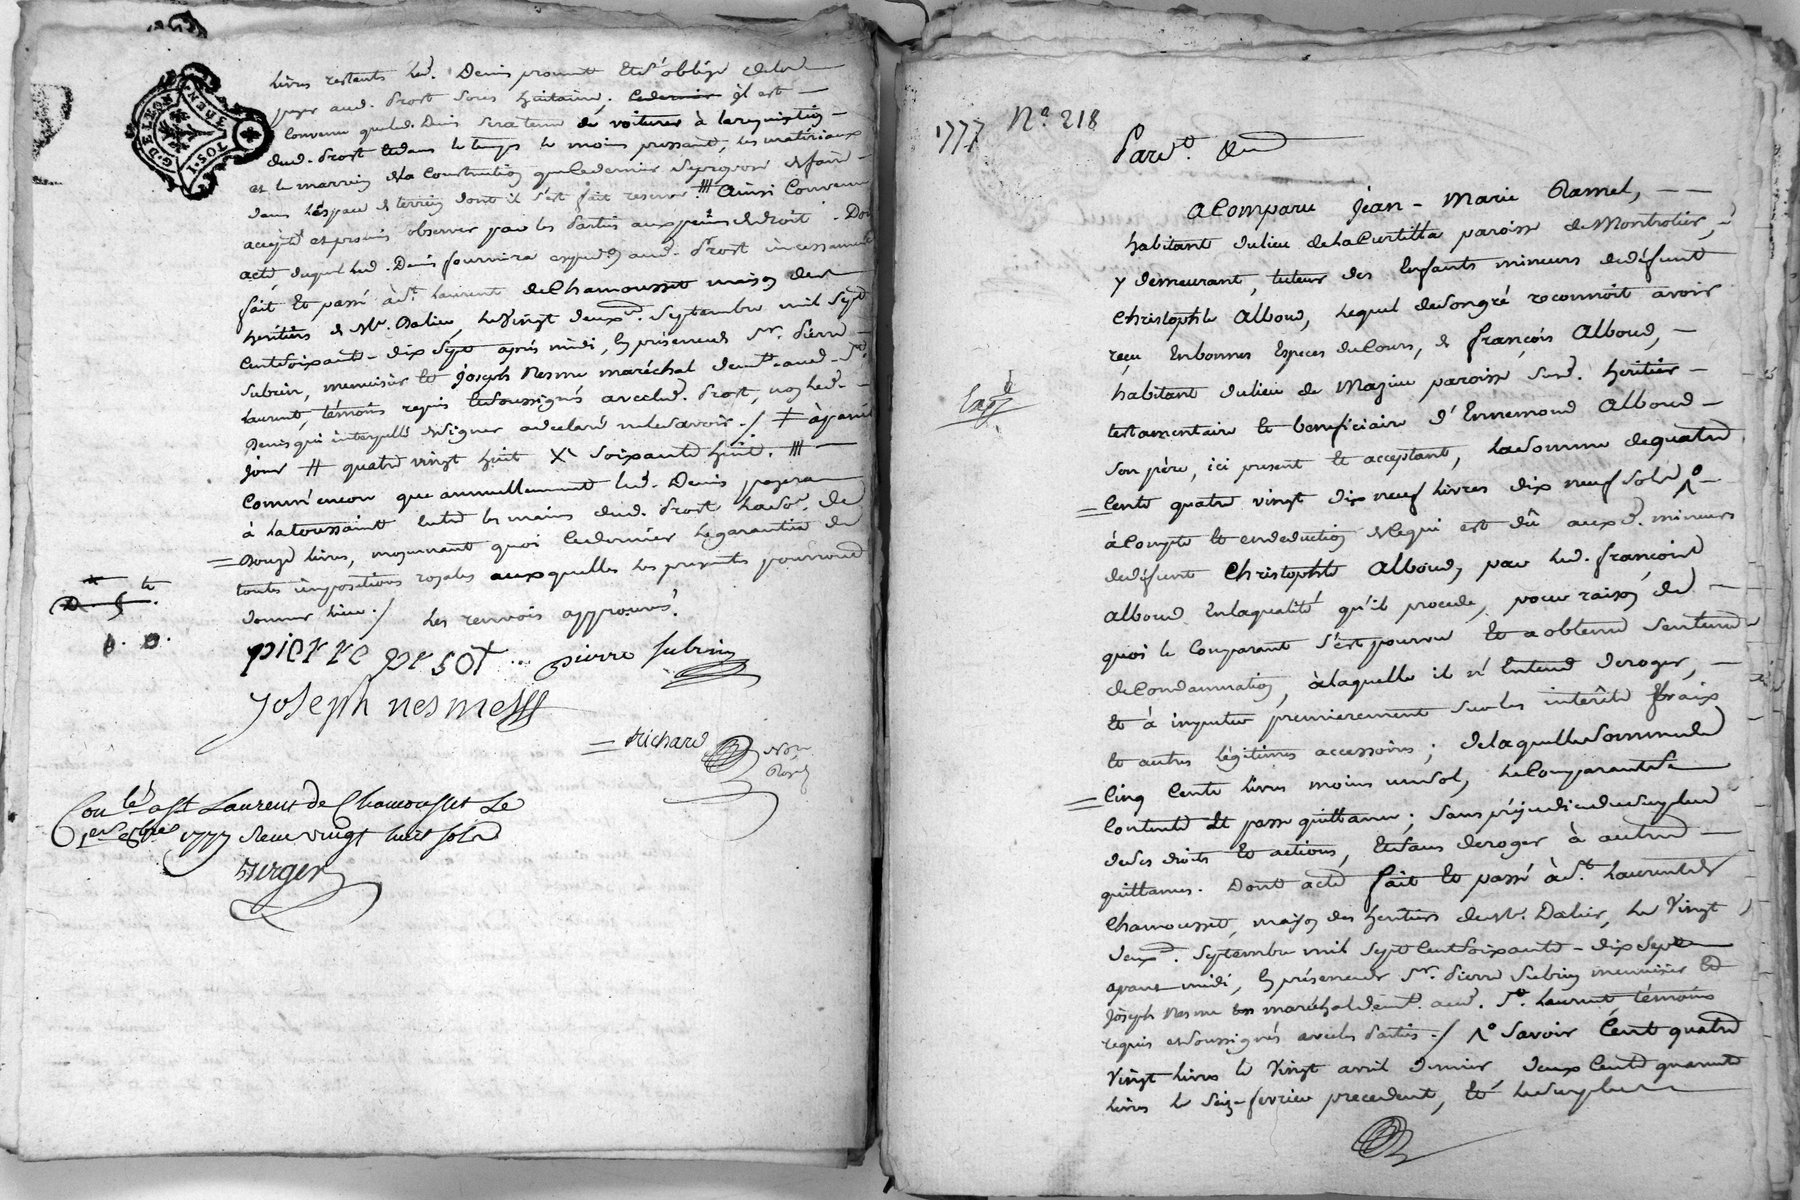 livres restants led. Denis promet et s'oblige de les
payer aud. Prost sous huitaine; il est
convenu que led. Denis sera tenu de voiturer à la requisition
dud. Prost et dans le temps le moins pressant, les matériaux
et le marrein de la construction que ce dernier se propose de faire
dans l'espace de terrein dont il s'est fait reserve # ainsi convenu
accepté et promis observer par les parties aux peines de droit. Dont
acte duquel led. Denis fournira expedon aud. Prost incessamment
fait et passé à St. Laurent de Chamousset maison des
héritiers de Me. Dalier, le vingt deuxe. septembre mil sept
cent soixante-dix sept après midi, en présence de Sr. Pierre
Subrin, menuisier et Joseph Nesme maréchal demt. aud. St.
Laurent, témoins requis et soussignés avec led. Prost, non led.
Denis qui interpellé de signer a declaré ne le savoir ./ ‡ à pareil
jour # quatre vingt huit X soixante huit. #
comm' encore que annuellement led. Denis payera
à la toussaint entre les mains dud. Prost la so. de
= douze livres, moyennant quoi ce dernier le garantira de
toutes impositions royales auxquelles les presentes pourroient
donner lieu ./ les renvois approuvés.
pierre prost pierre subrin
Joseph nesme
= Richard Nore
Royal
Conlé a St Laurent de Chamousset le
1er 8bre 1777 Reçu vingt huit sols
Berger
G. DE LYON
1777 No. 218
Pardt.
a comparu Jean-Marie Ramel,
habitant du lieu de la Curtilla paroisse de Montrotier,
y demeurant, tuteur des enfants mineurs de défunt
Christophle Alboud, lequel de son gré reconnoit avoir
reçu en bonnes especes de cours, de françois Alboud,
habitant du lieu de Mazieu paroisse susd. héritier
Expd.
testamentaire et beneficiaire d'Ennemond Alboud
son père, ici present et acceptant, la somme de quatre
= cents quatre vingt dix neuf livres dix neuf sols
à compte et en deduction de ce qui est dû auxd. mineurs
de défunt Christophle Alboud, par led. françois
Alboud en la qualité qu'il procede, pour raison de
quoi le comparant s'est pourvu et a obtenu sentence
de condamnation, à laquelle il n'entend deroger,
et à imputer premierement sur les intérêts fraix
et autres légitimes accessoires; de laquelle somme de
= cinq cents livres moins un sol, le comparant se
contente et passe quittance; sans préjudice du surplus
de ses droits et actions, et sans deroger à autres
quittances. Dont acte fait et passé à St. Laurent de
Chamousset, maison des heritiers de Me. Dalier, le vingt
deuxe. septembre mil sept cent soixante-dix sept
avant midi, en présence de Sr. Pierre Subrin menuisier et
Joseph Nesme maréchal demt. aud. St. Laurent témoins
requis et soussignés avec les parties ./ savoir cent quatre
vingt livres le vingt avril dernier deux cents quarante
livres le seize fevrier precedent, et le surplus